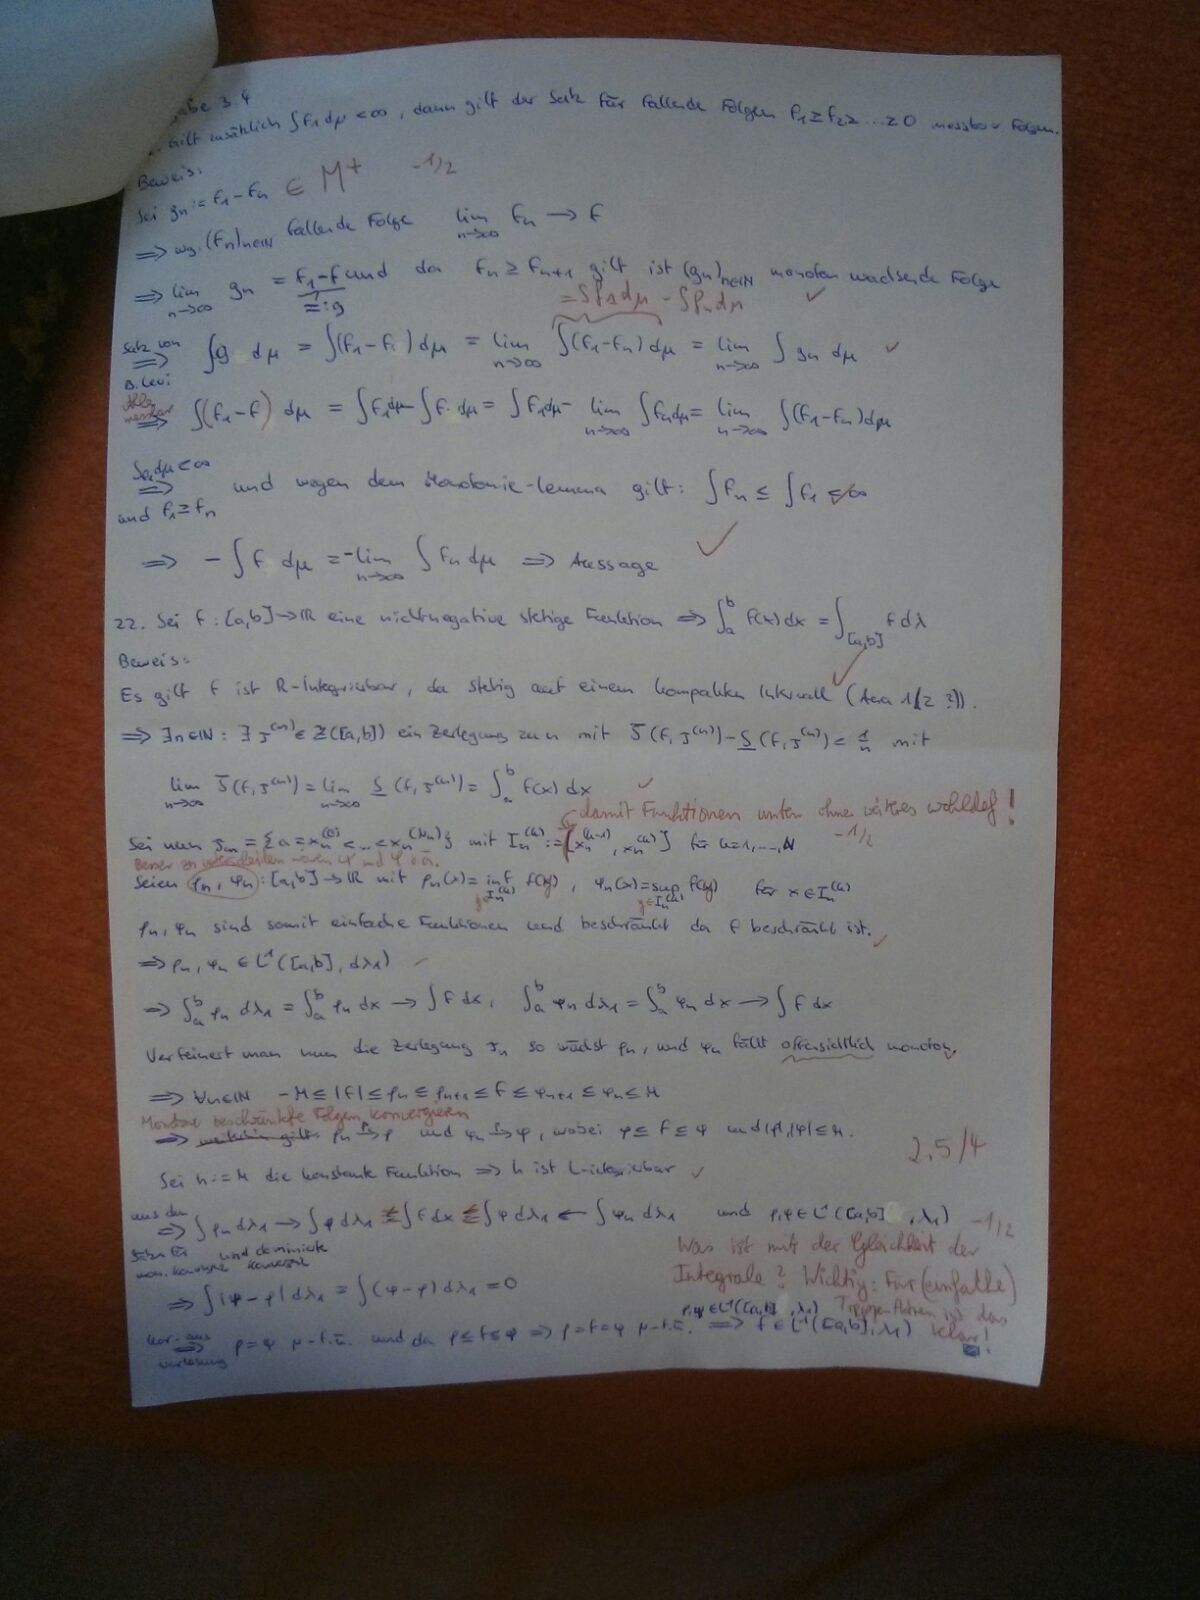 3.4
gilt zusätzlich ∫f₁dμ < ∞, dann gilt der Satz für fallende Folgen f₁ ≥ f₂ ≥ ... ≥ 0 messbar Folgen.
Beweis:
Sei gₙ := f₁ - fₙ ∈ M⁺ -1/2
⟹ wg. (fₙ)n∈ℕ fallende Folge lim n→∞ fₙ → f
⟹ lim n→∞ gₙ = f₁-f =: g und da fₙ ≥ fₙ₊₁ gilt ist (gₙ)n∈ℕ monoton wachsende Folge
= ∫f₁dμ - ∫fₙdμ ✓
Satz von B. Levi ⟹ ∫g dμ = ∫(f₁-f) dμ = lim n→∞ ∫(f₁-fₙ) dμ = lim n→∞ ∫ gₙ dμ ✓
⟹ ∫(f₁-f) dμ = ∫f₁dμ - ∫f dμ = ∫f₁dμ - lim n→∞ ∫fₙdμ = lim n→∞ ∫(f₁-fₙ)dμ
∫f₁dμ<∞ und f₁≥fₙ ⟹ und wegen dem Monotonie-Lemma gilt: ∫fₙ ≤ ∫f₁ < ∞
⟹ -∫f dμ = -lim n→∞ ∫fₙ dμ ⟹ Aussage ✓
22. Sei f:[a,b]→ℝ eine nichtnegative stetige Funktion ⟹ ∫ₐᵇ f(x)dx = ∫[a,b] f dλ
Beweis:
Es gilt f ist R-Integrierbar, da stetig auf einem kompakten Intervall (Ana 1/2 ?). ✓
⟹ ∃n∈ℕ: ∃ ζ⁽ⁿ⁾ ∈ Z([a,b]) ein Zerlegung zu n mit S̄(f,ζ⁽ⁿ⁾) - S̲(f,ζ⁽ⁿ⁾) < 1/n mit
lim n→∞ S̄(f,ζ⁽ⁿ⁾) = lim n→∞ S̲(f,ζ⁽ⁿ⁾) = ∫ₐᵇ f(x) dx ✓
damit Funktionen unten ohne weiteres wohldef!
Sei nun ζₙ = {a = xₙ⁽⁰⁾ < ... < xₙ⁽ᴺⁿ⁾} mit Iₙ⁽ᵏ⁾ := [xₙ⁽ᵏ⁻¹⁾, xₙ⁽ᵏ⁾] für k=1,...,N -1/2
Besser zu unterscheiden wären ψ und φ o.ä.
Seien ρₙ, φₙ: [a,b]→ℝ mit ρₙ(x) = inf y∈Iₙ⁽ᵏ⁾ f(y), φₙ(x) = sup y∈Iₙ⁽ᵏ⁾ f(y) für x∈Iₙ⁽ᵏ⁾
ρₙ, φₙ sind somit einfache Funktionen und beschränkt da f beschränkt ist. ✓
⟹ ρₙ, φₙ ∈ L¹([a,b], dλ₁) ✓
⟹ ∫ₐᵇ ρₙ dλ₁ = ∫ₐᵇ ρₙ dx → ∫f dx, ∫ₐᵇ φₙ dλ₁ = ∫ₐᵇ φₙ dx → ∫ f dx
Verfeinert man nun die Zerlegung ζₙ so wächst ρₙ, und φₙ fällt offensichtlich monoton.
⟹ ∀n∈ℕ -M ≤ |f| ≤ ρₙ ≤ ρₙ₊₁ ≤ f ≤ φₙ₊₁ ≤ φₙ ≤ M
Monotone beschränkte Folgen konvergieren
⟹ weiterhin gilt: ρₙ → ρ und φₙ → φ, wobei φ ≤ f ≤ φ und |ρ|,|φ| ≤ M.
2,5/4
Sei h := M die konstante Funktion ⟹ h ist L-integrierbar ✓
aus den Sätzen für mon. Konvergenz und dominierte Konvergenz ⟹ ∫ρₙ dλ₁ → ∫ρ dλ₁ ≤ ∫f dx ≤ ∫φ dλ₁ ← ∫φₙ dλ₁ und ρ,φ ∈ L¹([a,b], λ₁) -1/2
Was ist mit der Gleichheit der
Integrale? Wichtig: Für (einfache)
Treppenfktnen ist das
klar!
⟹ ∫|φ-ρ| dλ₁ = ∫(φ-ρ) dλ₁ = 0
Kor. aus Vorlesung ⟹ ρ = φ μ-f.ü. und da ρ ≤ f ≤ φ ⟹ ρ = f = φ μ-f.ü. ρ,φ∈L¹([a,b],λ₁) ⟹ f ∈ L¹([a,b], λ₁)